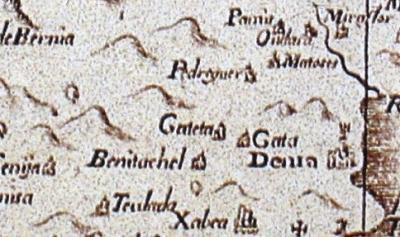 de Bernia
Pamis
Miraflor
Ondara
Matoses
Pedreguer
Gateta
Gata
Benitachel
Denia
Senija
Teulada
Xabea